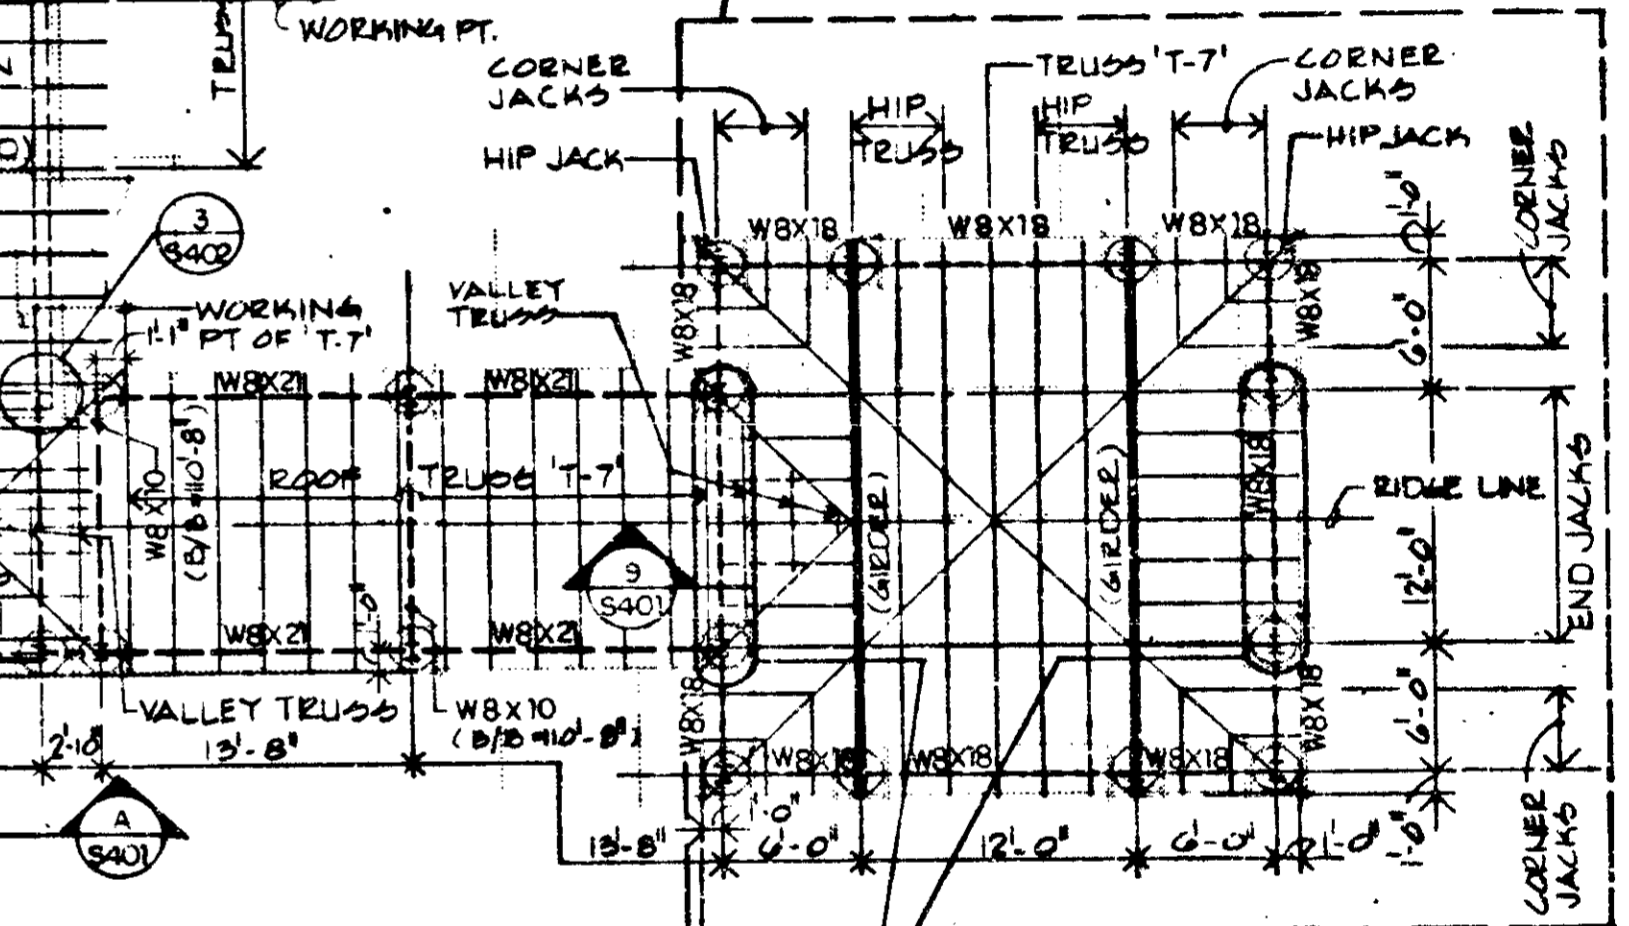 WORKING PT.
TRUSS
CORNER
JACKS
TRUSS 'T-7'
CORNER
JACKS
HIP
TRUSS
HIP
TRUSS
HIP JACK
HIP JACK
CORNER
JACKS
3
S402
W8X18
W8X18
W8X18
1'-0"
WORKING
PT OF 'T-7'
1'-1"
VALLEY
TRUSS
W8X18
W8X18
6'-0"
W8X21
W8X21
W8X10
(B/B=110'-8")
ROOF TRUSS 'T-7'
(GIRDER)
(GIRDER)
W8X18
RIDGE LINE
END JACKS
12'-0"
9
S401
1'-0"
W8X21
W8X21
VALLEY TRUSS
W8X10
(B/B=110'-8")
W8X18
W8X18
6'-0"
2'-10"
13'-8"
W8X18
W8X18
W8X18
A
S401
13'-8"
1'-0"
6'-0"
12'-0"
6'-0"
1'-0"
1'-0"
CORNER
JACKS